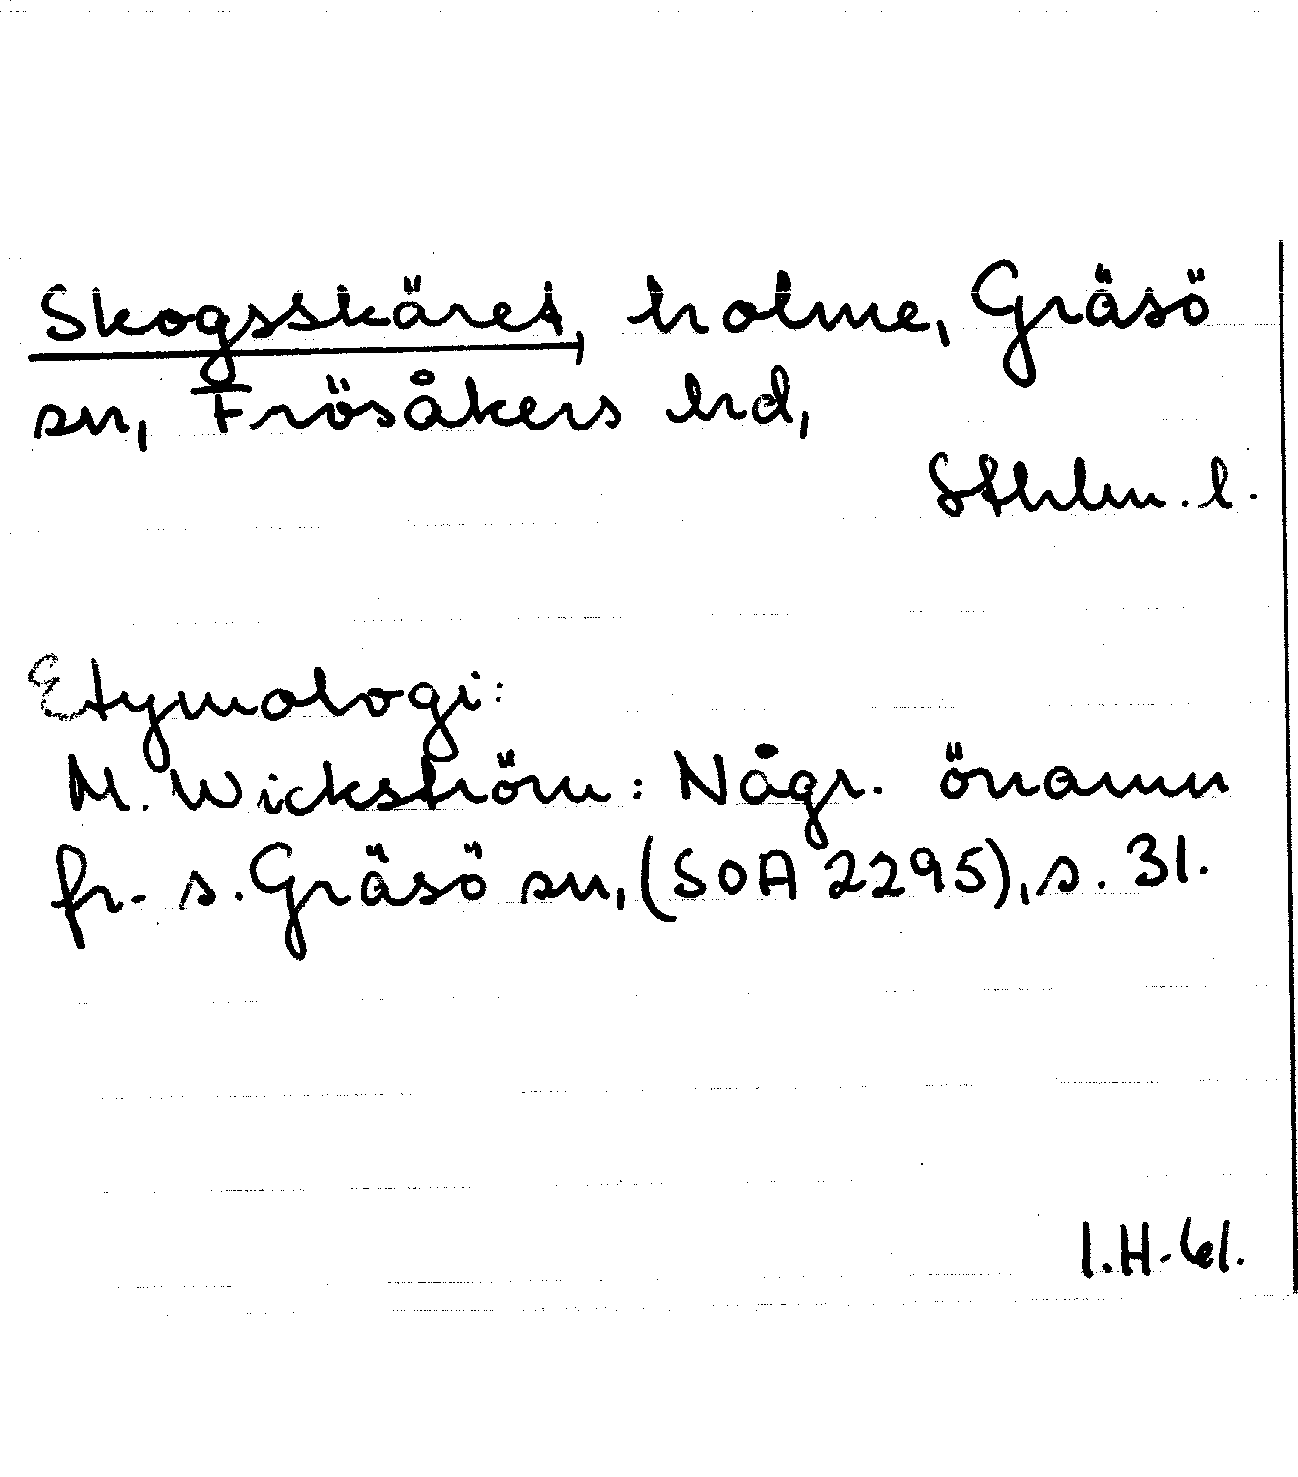 Skogsskäret, holme, Gräsö
sn, Frösåkers hd,
Sthlm. l.
Etymologi:
M. Wickström: Någr. önamn
fr. s. Gräsö sn, (SOA 2295), s. 31.
I.H. 61.